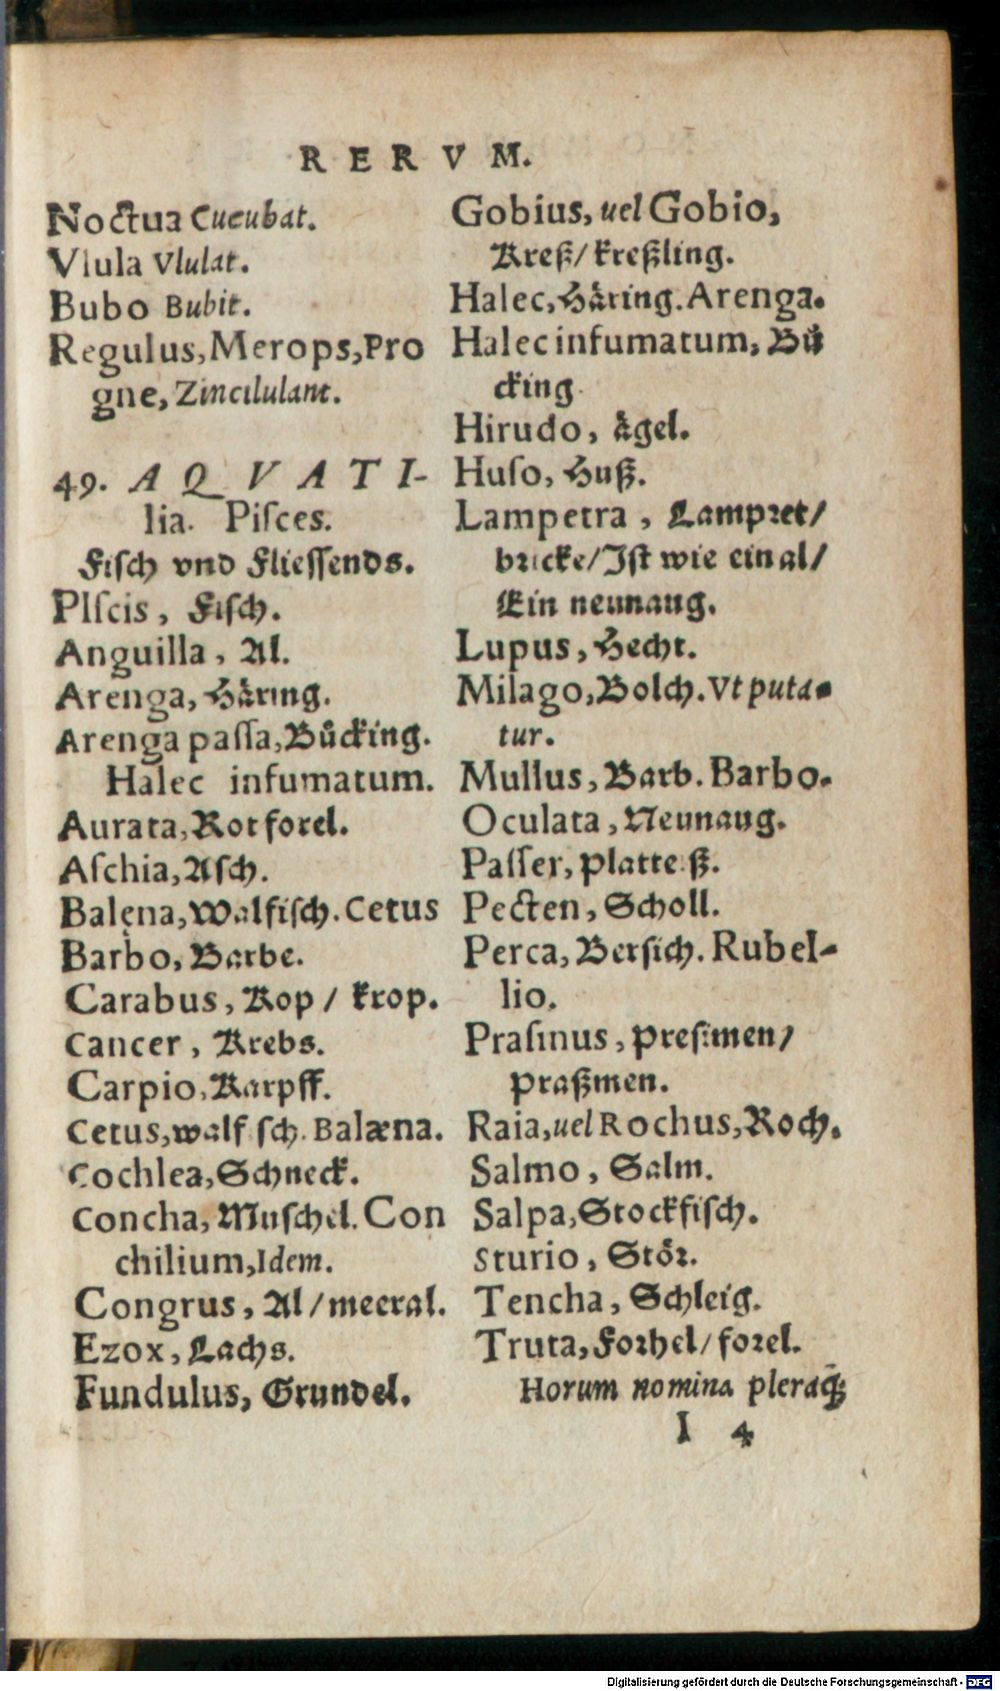 RERVM.
Noctua Cucubat.
Vlula Vlulat.
Bubo Bubit.
Regulus, Merops, Pro
gne, Zinzilulant.
49. AQVATI-
lia. Piſces.
Fiſch vnd Flieſſends.
PIſcis, Fiſch.
Anguilla, Al.
Arenga, Haͤring.
Arenga paſſa, Buͤcking.
Halec infumatum.
Aurata, Rotforel.
Aſchia, Aſch.
Balęna, Walfiſch. Cetus
Barbo, Barbe.
Carabus, Kop / krop.
Cancer, Krebs.
Carpio, Karpff.
Cetus, walfiſch. Balæna.
Cochlea, Schneck.
Concha, Muſchel. Con
chilium, Idem.
Congrus, Al / meeral.
Ezox, Lachs.
Fundulus, Grundel.
Gobius, uel Gobio,
Kreß / kreßling.
Halec, Haͤring. Arenga.
Halec infumatum, Buͤ
cking
Hirudo, aͤgel.
Huſo, Huß.
Lampetra, Lampret /
bricke / Iſt wie ein al /
Ein neunaug.
Lupus, Hecht.
Milago, Bolch. Vt puta-
tur.
Mullus, Barb. Barbo.
Oculata, Neunaug.
Paſſer, Platteiß.
Pecten, Scholl.
Perca, Berſich. Rubel-
lio.
Praſinus, Preſimen /
praßmen.
Raia, uel Rochus, Roch.
Salmo, Salm.
Salpa, Stockfiſch.
Sturio, Stoͤr.
Tencha, Schleig.
Truta, Forhel / forel.
Horum nomina pleraq́;
I 4
Digitalisierung gefördert durch die Deutsche Forschungsgemeinschaft - DFG